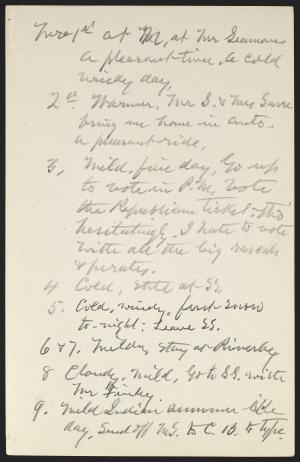 Nov 1st at M, at Mr Seamans
a pleasant time. A cold
windy day,
2d Warmer. Mr S. & Mrs
bring me home in auto.
a pleasant ride,
3, Mild, fine day, Go up
to vote in P.M. Vote
the Republican ticket, tho'
hesitatingly, I hate to vote
with all the big rascals
& pirates.
4 Cold, still at SS.
5. Cold, windy, first snow
to-night; Leave SS.
6 & 7. Milder, stay at Riverby
8 Cloudy, mild, Go to SS. with
Mr
9. Mild Indian summer like
day, Send off MS. to C. B. to type